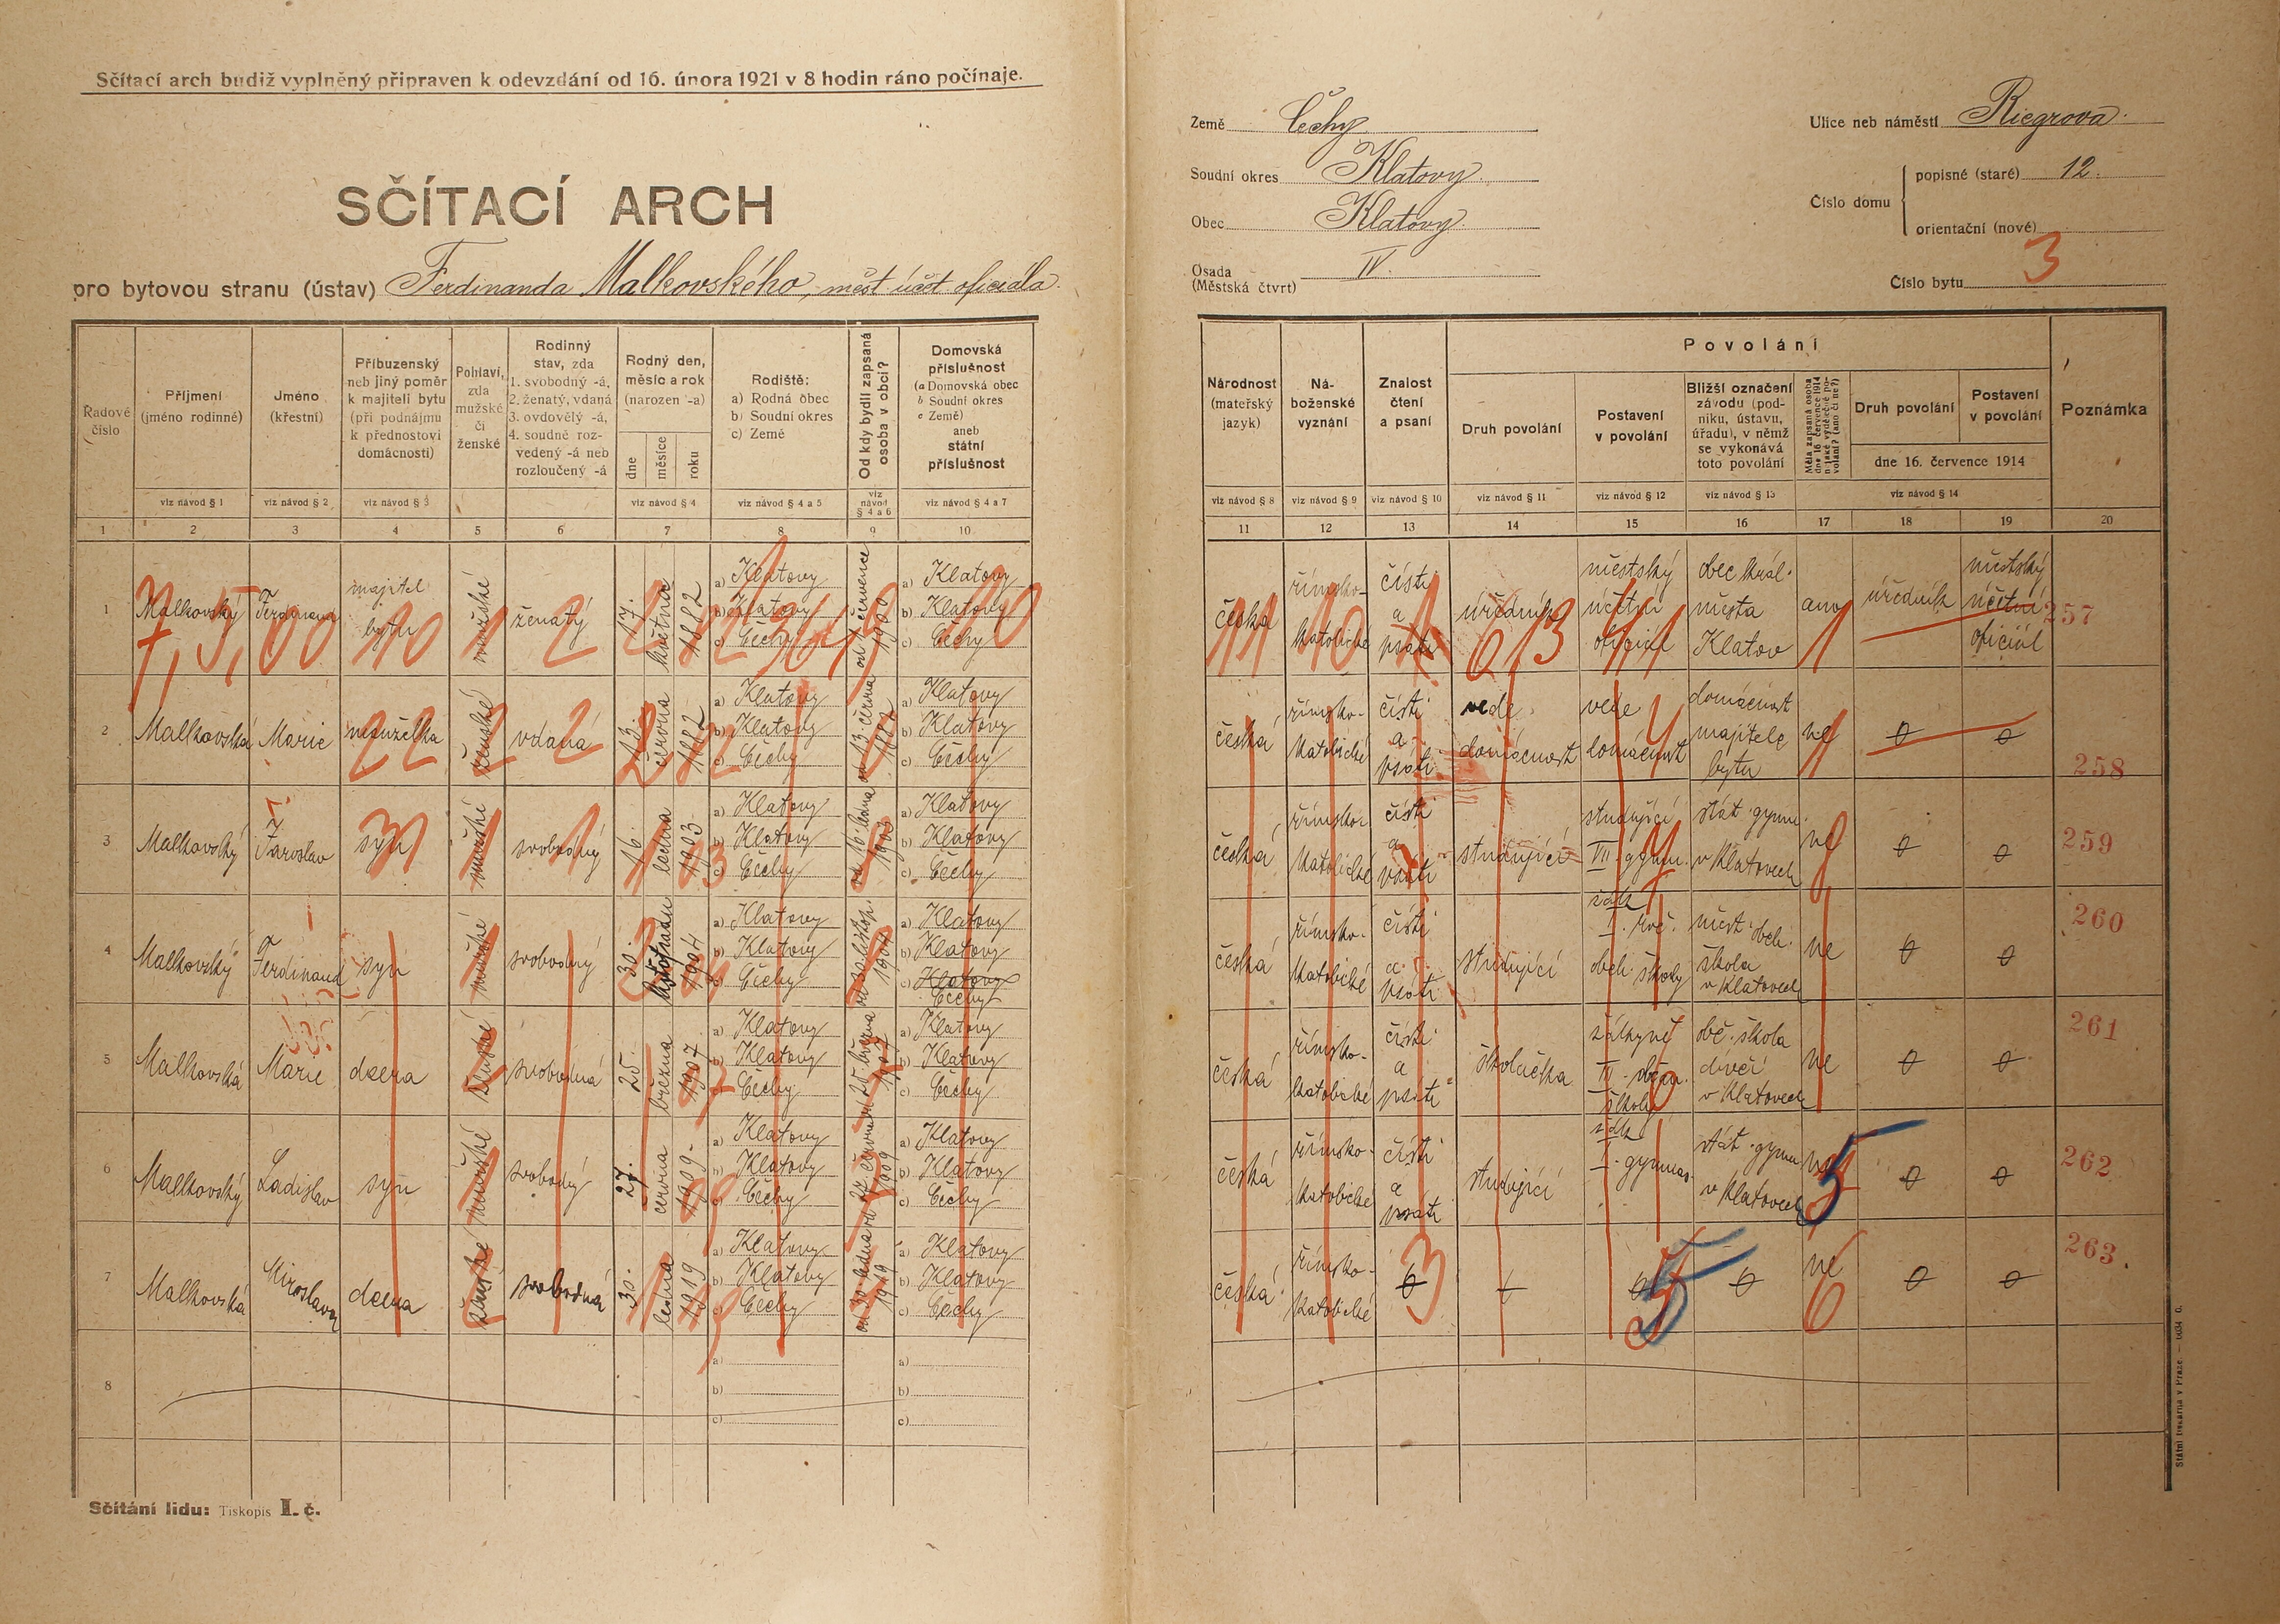 Sčítací arch budiž vyplněný připraven k odevzdání od 16. února 1921 v 8 hodin ráno počínaje.
SČÍTACÍ ARCH
pro bytovou stranu (ústav) Ferdinanda Malkovského, měst. účet. oficiála.
Země Čechy
Soudní okres Klatovy.
Obec Klatovy.
Osada (Městská čtvrt) IV.
Ulice neb náměstí Riegrova.
Číslo domu
popisné (staré) 12.
orientační (nové)
Číslo bytu 3
Řadové číslo
Příjmení (jméno rodinné)
Jméno (křestní)
Příbuzenský neb jiný poměr k majiteli bytu (při podnájmu k přednostovi domácnosti)
Pohlaví, zda mužské či ženské
Rodinný stav, zda
1. svobodný -á,
2. ženatý, vdaná
3. ovdovělý -á,
4. soudně rozvedený -á neb rozloučený -á
Rodný den, měsíc a rok (narozen -a)
dne
měsíce
roku
Rodiště:
a) Rodná obec
b) Soudní okres
c) Země
Od kdy bydlí zapsaná osoba v obci?
Domovská příslušnost
(a Domovská obec
b Soudní okres
c Země)
aneb
státní příslušnost
viz návod § 1
viz návod § 2
viz návod § 3
viz návod § 4
viz návod § 4 a 5
viz návod § 4 a 6
viz návod § 4 a 7
1 2 3 4 5 6 7 8 9 10
Národnost (mateřský jazyk)
Náboženské vyznání
Znalost čtení a psaní
Povolání
Druh povolání
Postavení v povolání
Bližší označení závodu (podniku, ústavu, úřadu), v němž se vykonává toto povolání
Měla zapsaná osoba dne 16. července 1914 nějaké výdělečné povolání? (ano či ne?)
Druh povolání
Postavení v povolání
dne 16. července 1914
Poznámka
viz návod § 8
viz návod § 9
viz návod § 10
viz návod § 11
viz návod § 12
viz návod § 13
viz návod § 14
11 12 13 14 15 16 17 18 19 20
1 Malkovský Ferdinand majitel bytu mužské ženatý 17. května 1882
a) Klatovy b) Klatovy c) Čechy
od července 1900
a) Klatovy b) Klatovy c) Čechy
česká římsko-katolické čísti a psáti úředník městský účetní oficiál obec král. města Klatov ano úředník městský účetní oficiál 257
2 Malkovská Marie manželka ženské vdaná 13. června 1882
a) Klatovy b) Klatovy c) Čechy
od 13. června 1882
a) Klatovy b) Klatovy c) Čechy
česká římsko-katolické čísti a psáti vede domácnost vede domácnost domácnost majitele bytu ne 0 0 258
3 Malkovský Jaroslav syn mužské svobodný 16. ledna 1903
a) Klatovy b) Klatovy c) Čechy
od 16. ledna 1903
a) Klatovy b) Klatovy c) Čechy
česká římsko-katolické čísti a psáti studující studující VII. gymn. stát. gymn. v Klatovech ne 0 0 259
4 Malkovský Ferdinand syn mužské svobodný 30. listopadu 1904
a) Klatovy b) Klatovy c) Čechy
od listop. 1904
a) Klatovy b) Klatovy c) Klatovy Čechy
česká římsko-katolické čísti a psáti studující žák I. roč. obch. školy měst. obch. škola v Klatovech ne 0 0 260
5 Malkovská Marie dcera ženské svobodná 25. března 1907
a) Klatovy b) Klatovy c) Čechy
od 25. března 1907
a) Klatovy b) Klatovy c) Čechy
česká římsko-katolické čísti a psáti školačka žákyně III. občan. školy obč. škola dívčí v Klatovech ne 0 0 261
6 Malkovský Ladislav syn mužské svobodný 27. června 1909
a) Klatovy b) Klatovy c) Čechy
od 27. června 1909
a) Klatovy b) Klatovy c) Čechy
česká římsko-katolické čísti a psáti studující žák I. gymnas. stát. gymn. v Klatovech ne 0 0 262
7 Malkovská Miroslava dcera ženské svobodná 30. ledna 1919
a) Klatovy b) Klatovy c) Čechy
od 30. ledna 1919
a) Klatovy b) Klatovy c) Čechy
česká římsko-katolické 0 0 0 ne 0 0 263
8
a)
b)
c)
a)
b)
c)
Sčítání lidu: Tiskopis I. č.
Státní tiskárna v Praze.